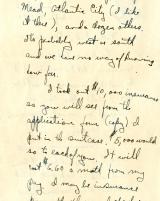 Mead, Atlantic City (I like
it this), and a dozen others.
It's probably west or south
and we have no way of knowing
how far.
I took out $10,000 insurance
as you will see from the
application form (copy) I
put in the suitcase. 5,000 would
go to each of you. It will
cost $6.60 a month from my
pay. I may be insurance